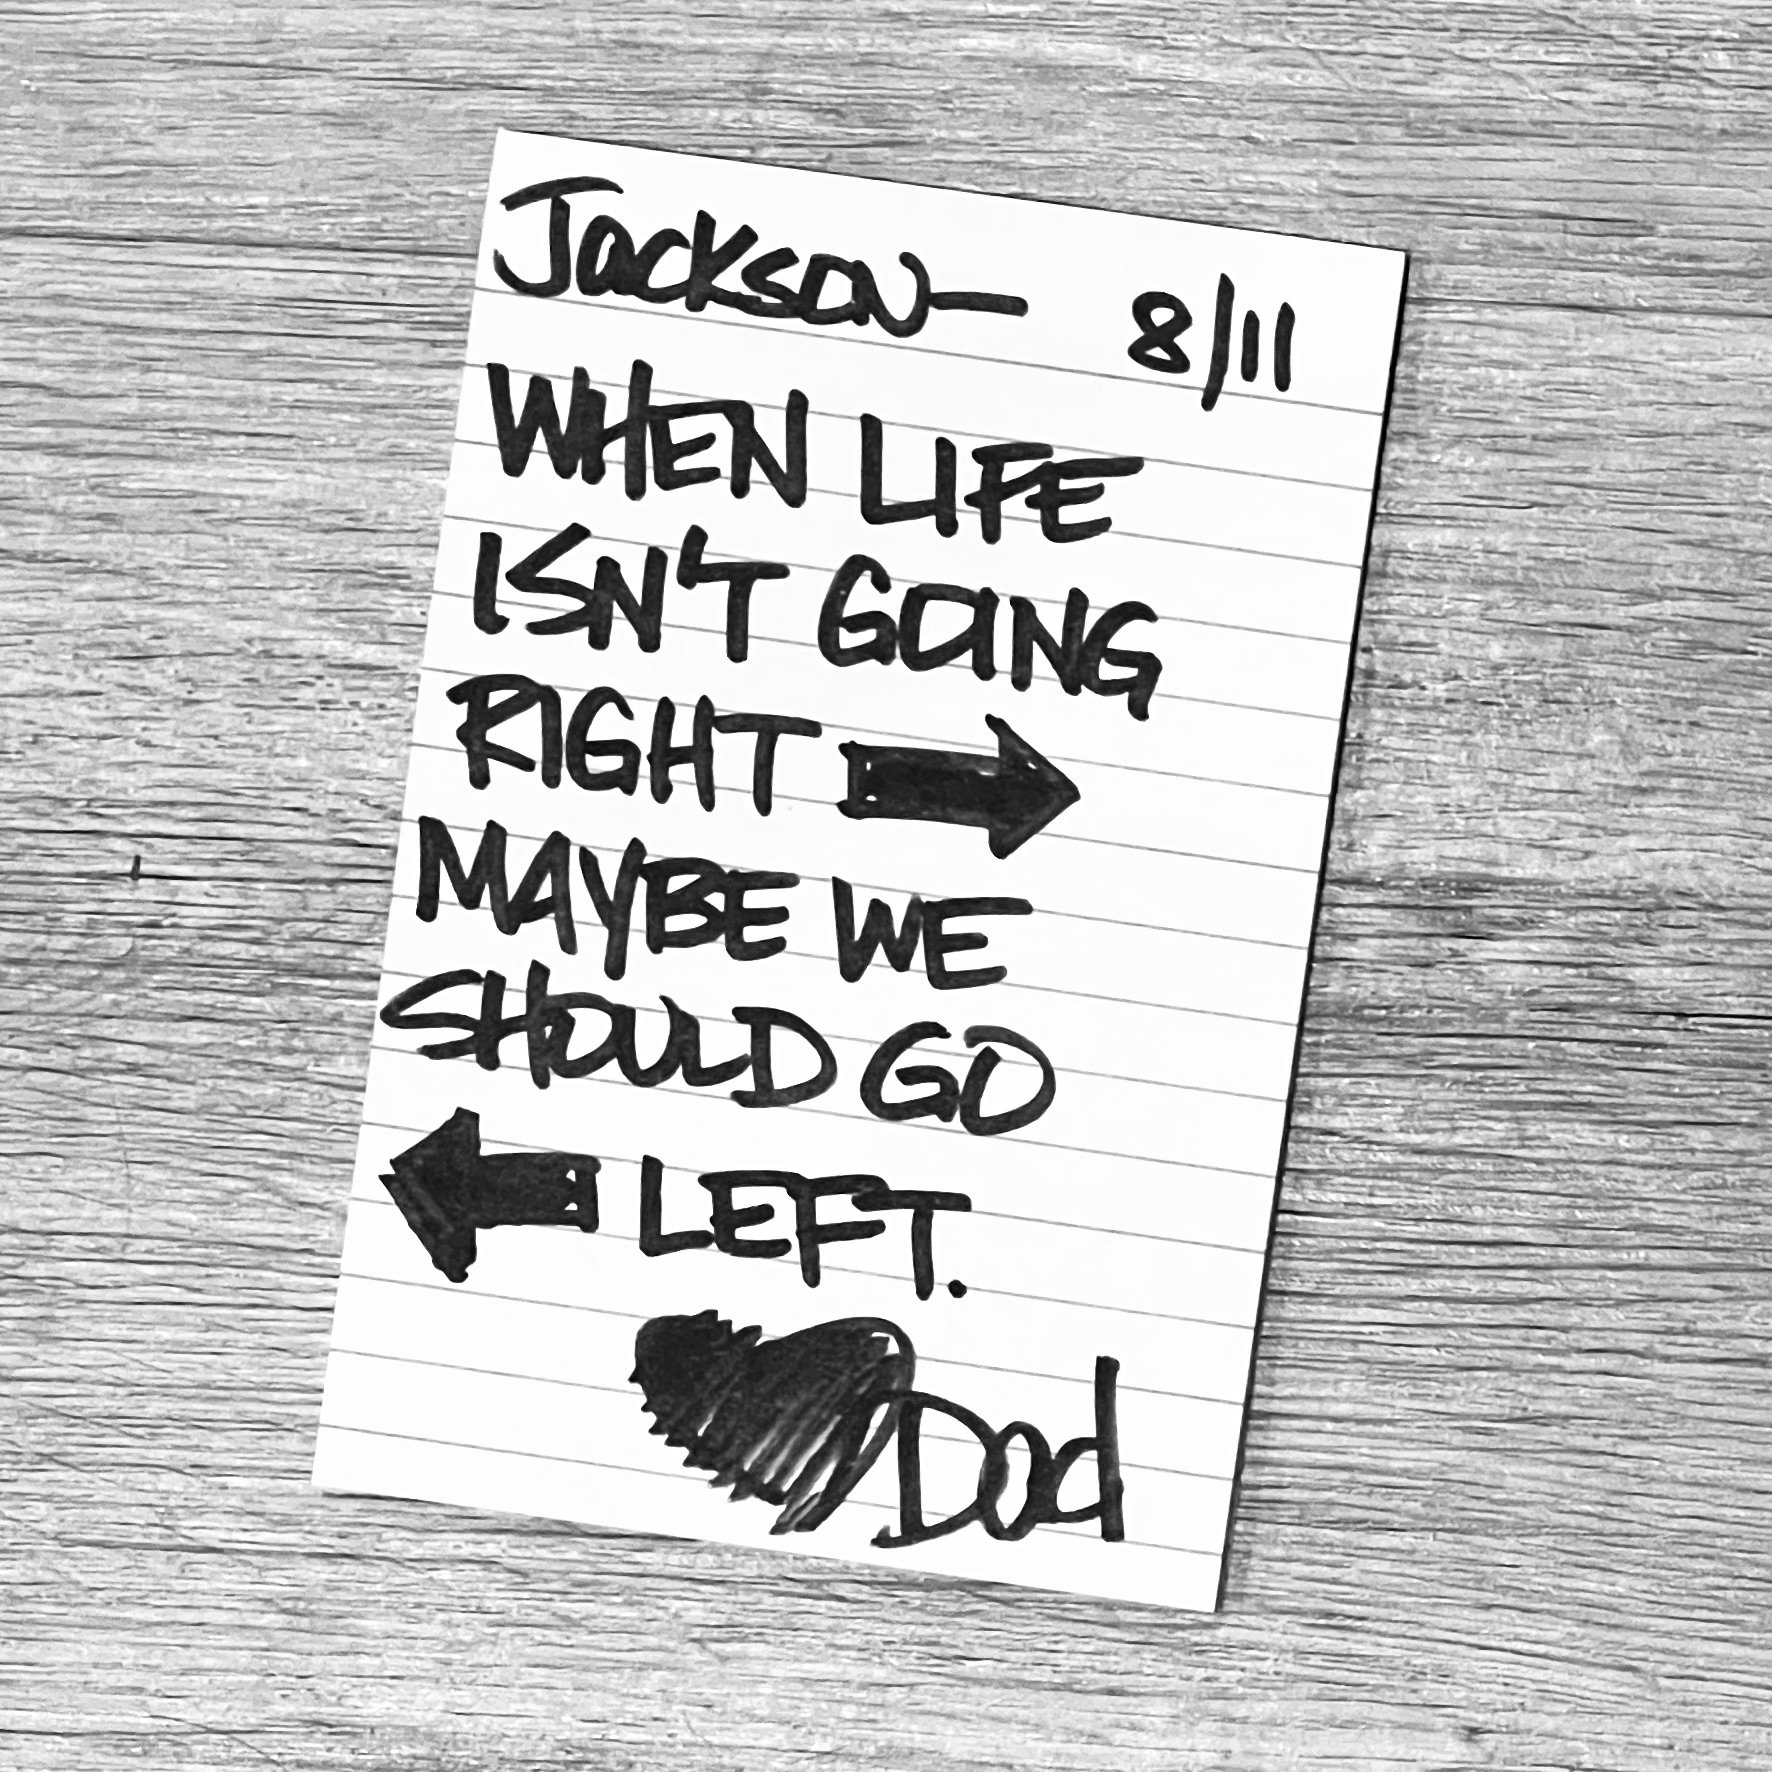 Jackson— 8/11
WHEN LIFE
ISN'T GOING
RIGHT
MAYBE WE
SHOULD GO
LEFT.
Dad